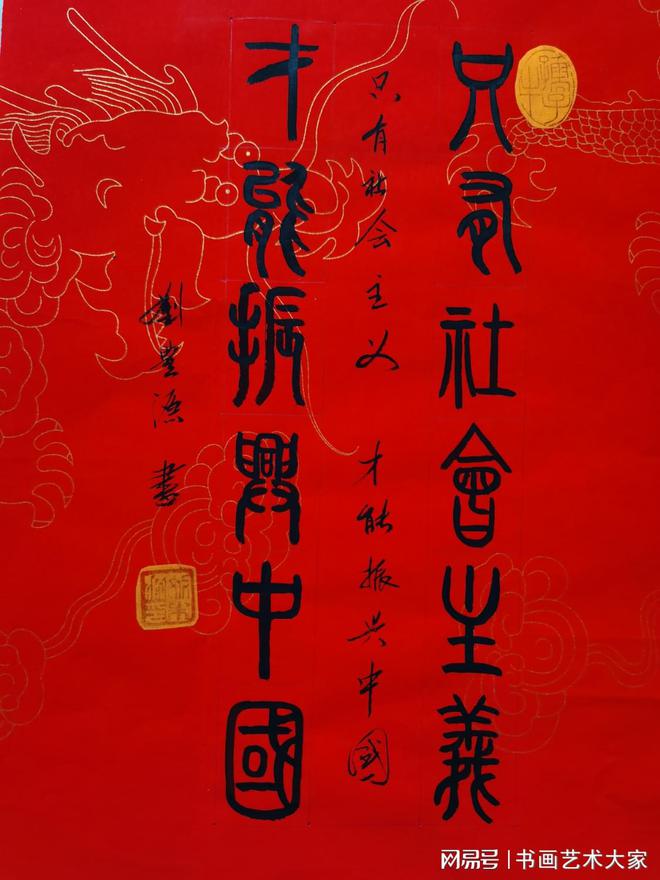 只有社會主義
只有社会主义 才能振兴中國
才能振興中國
書
网易号 | 书画艺术大家